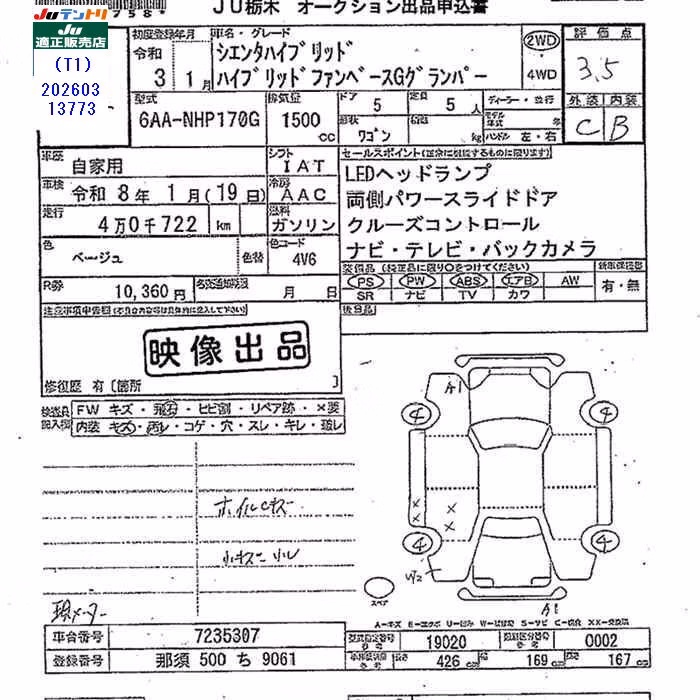 758*
JU栃木 オークション出品申込書
JUテントリ
JU
適正販売店
(T1)
202603
13773
初度登録年月
令和
3 1月
車名・グレード
シエンタハイブリッド
ハイブリッドファンベースGグランパー
2WD
4WD
評価点
3.5
外装 内装
C B
型式
6AA-NHP170G
排気量
1500 cc
ドア
5
定員
5 人
形状
ワゴン
kg
ディーラー・並行
ハンドル 左・右
車歴
自家用
シフト
IAT
車検
令和 8年 1月(19日)
冷房
AAC
走行
4万0千722 km
燃料
ガソリン
色
ベージュ
色替
色コード
4V6
セールスポイント(正常に作動するものに限ります)
LEDヘッドランプ
両側パワースライドドア
クルーズコントロール
ナビ・テレビ・バックカメラ
装備品(純正品に限り○をつけてください)
PS PW ABS エアB AW
SR ナビ TV カワ
新車保証書
有・無
後日品
R券
10,360円
名変通知期限
月 日
注意事項申告欄
映像出品
修復歴 有〔箇所 〕
検査員
記入欄
FW キズ・飛石・ヒビ割・リペア跡・×要
内装 キズ・汚レ・コゲ・穴・スレ・キレ・破レ
ホイルキズ
小キズ 小凹
現メーター
A1
4 4
4 4
W2
A1
スペア
A=キズ E=エクボ U=凹み W=波補修 S=サビ C=腐食 XX=交換済
車台番号
7235307
登録番号
那須 500 ち 9061
型式指定番号
19020
類別区分番号
0002
長さ
426 cm
幅
169 cm
高さ
167 cm